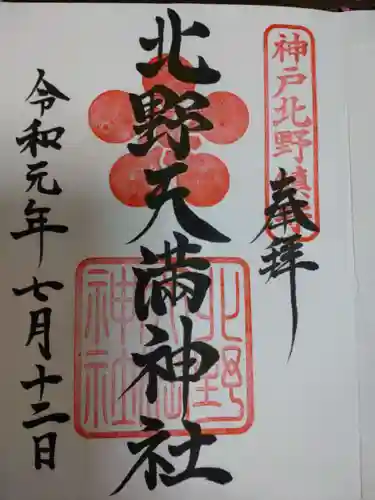 奉拝
神戸北野鎮
北野天満神社
北野天満神社
令和元年七月十二日